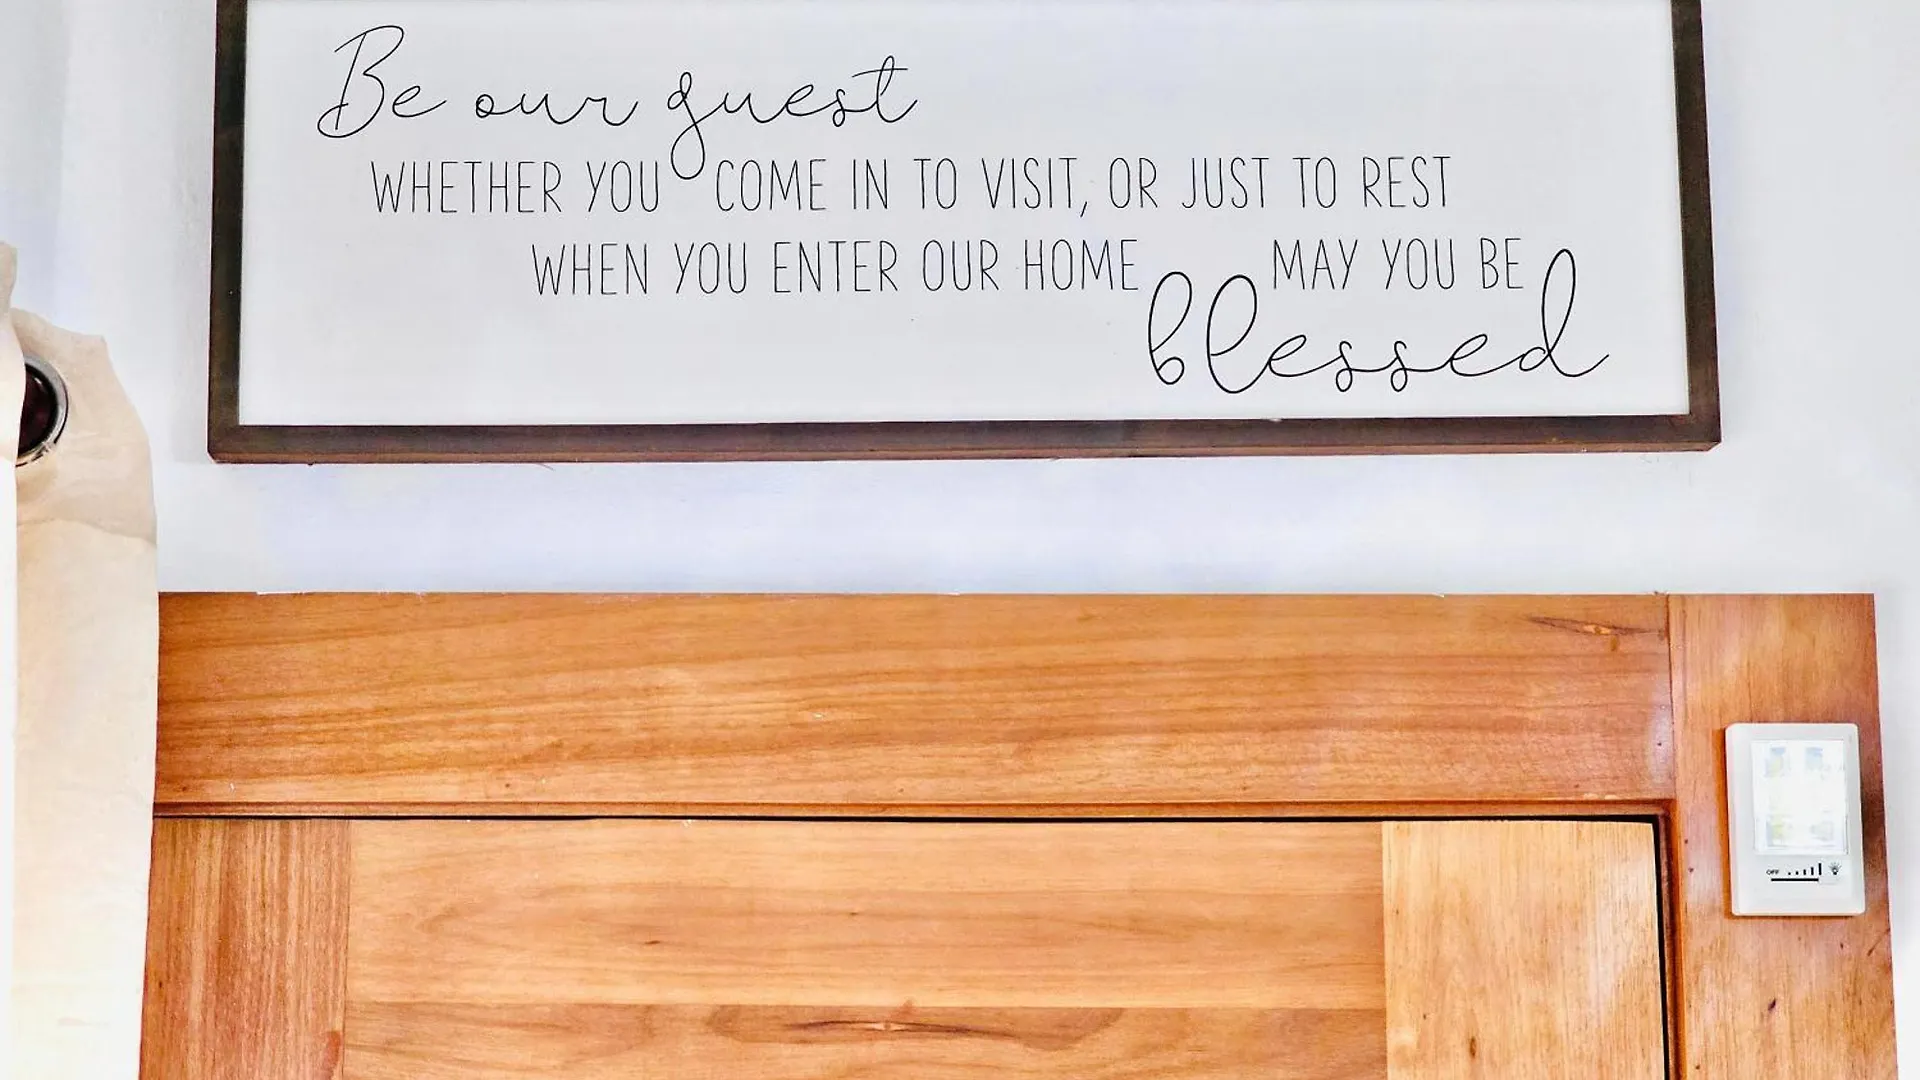 Be our guest
WHETHER YOU COME IN TO VISIT, OR JUST TO REST
WHEN YOU ENTER OUR HOME MAY YOU BE
blessed
OFF